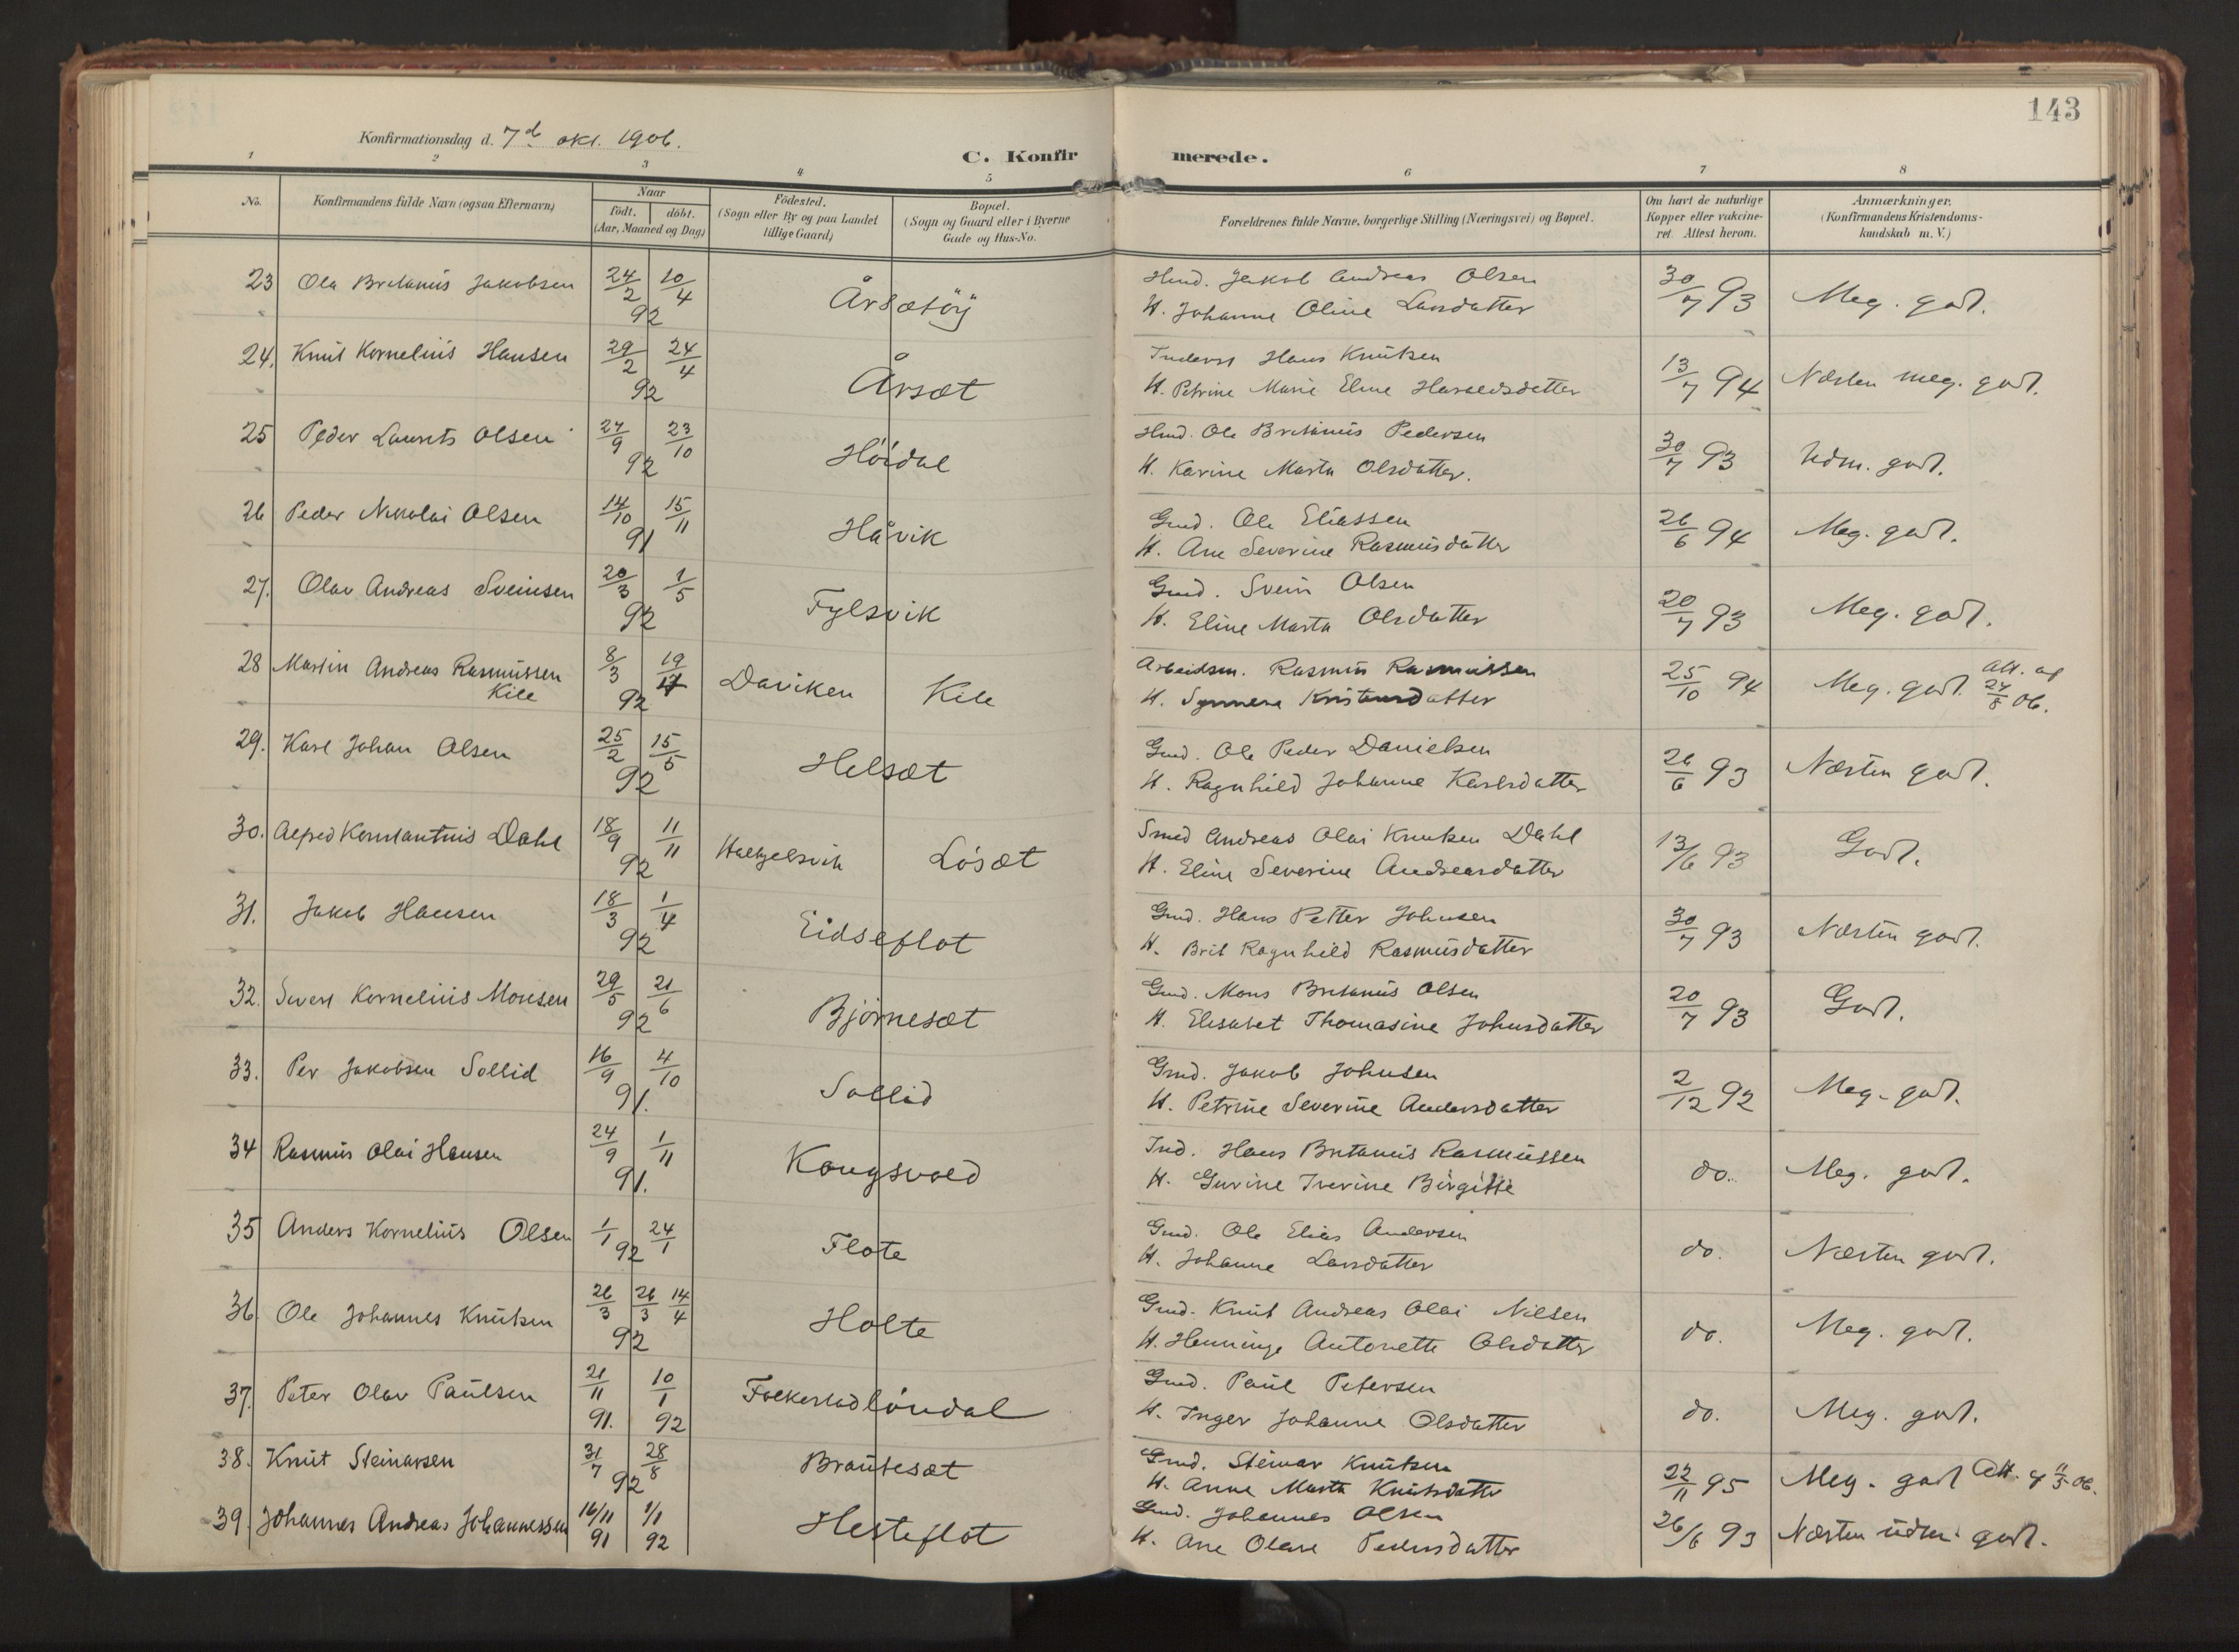 143
Konfirmationsdag d. 7de okt. 1906.
C. Konfirmerede.
1 2 3 4 5 6 7 8
No. | Konfirmandens fulde Navn (ogsaa Efternavn) | Naar født. døbt. (Aar, Maaned og Dag) | Fødested. (Sogn eller By og paa Landet tillige Gaard) | Bopæl. (Sogn og Gaard eller i Byerne Gade og Hus-No. | Forældrenes fulde Navne, borgerlige Stilling (Næringsvei) og Bopæl. | Om havt de naturlige Kopper eller vakcineret. Attest herom. | Anmærkninger. (Konfirmandens Kristendomskundskab m. V.)
23 Ola Britanus Jakobsen 24/2 10/4 92 Årsætöy Hmd. Jakob Andreas Olsen 30/7 93 Meg. godt.
H. Johanne Oline Larsdatter
24. Knut Kornelius Hansen 29/2 24/4 92 Årsæt Inderst Hans Knutsen 13/7 94 Næsten meg. godt.
H. Petrine Marie Eline
25 Peder Laurits Olsen 27/9 23/10 92 Höidal Hmd. Ole Britanus Pedersen 30/7 93 Udm. godt.
H. Karine Marta Olsdatter.
26 Peder Nikolai Olsen 14/10 15/11 91 Håvik Gmd. Ole Eliassen 26/6 94 Meg. godt.
H. Ane Severine Rasmusdatter
27. Olav Andreas Sveinsen 20/3 1/5 92 Fylsvik Gmd. Svein Olsen 20/7 93 Meg. godt.
H. Eline Marta Olsdatter
28 Martin Andreas Rasmussen Kile 8/3 19/4 92 Daviken Kile Arbeidsm. Rasmus Rasmussen 25/10 94 Meg. godt. Att. af 27/8 06.
H. Synneva Kristensdatter
29. Karl Johan Olsen 25/2 15/5 92 Helsæt Gmd. Ole Peder Danielsen 26/6 93 Næsten godt.
H. Ragnhild Johanne Karlsdatter
30. Alfred Konstantinus Dahl 18/9 11/11 92 Hallgelsvik Lösæt Smed Andreas Olai Knutsen Dahl 13/6 93 Godt.
H. Eline Severine Andreasdatter
31. Jakob Hansen 18/3 1/4 92 Eidseflot Gmd. Hans Petter Johnsen 30/7 93 Næsten godt.
H. Brit Ragnhild Rasmusdatter
32. Sivert Kornelius Monsen 29/5 21/6 92 Björnesæt Gmd. Mons Britanus Olsen 20/7 93 Godt.
H. Elisabet Thomasine Johnsdatter
33. Per Jakobsen Sollid 16/9 4/10 91. Sollid Gmd. Jakob Johnsen 2/12 92 Meg. godt.
H. Petrine Severine Andersdatter
34 Rasmus Olai Hansen 24/9 1/11 91. Kongsvold Ind. Hans Britanus Rasmussen do. Meg. godt.
H. Gurine Iverine Birgitte
35 Anders Kornelius Olsen 1/1 24/1 92 Flote Gmd. Ole Elias Andersen do. Næsten godt.
H. Johanne Larsdatter
36. Ole Johannes Knutsen 26/3 26/3 14/4 92 Holte Gmd. Knut Andreas Olai Nilsen do. Meg. godt.
H. Henninge Antonette Olsdatter
37. Peter Olav Paulsen 21/11 91. 10/1 92 Folkestadlöndal Gmd. Paul Petersen do. Meg. godt.
H. Inger Johanne Olsdatter
38. Knut Steinarsen 31/7 28/8 92 Brautesæt Gmd. Steinar Knutsen 22/11 95 Meg. godt Att. af 11/5 06.
H. Anne Marta Knutsdatter
39. Johannes Andreas Johannessen 16/11 91 1/1 92 Hesteflot Gmd. Johannes Olsen 26/6 93 Næsten udm. godt.
H. Ane Olave Pedersdatter